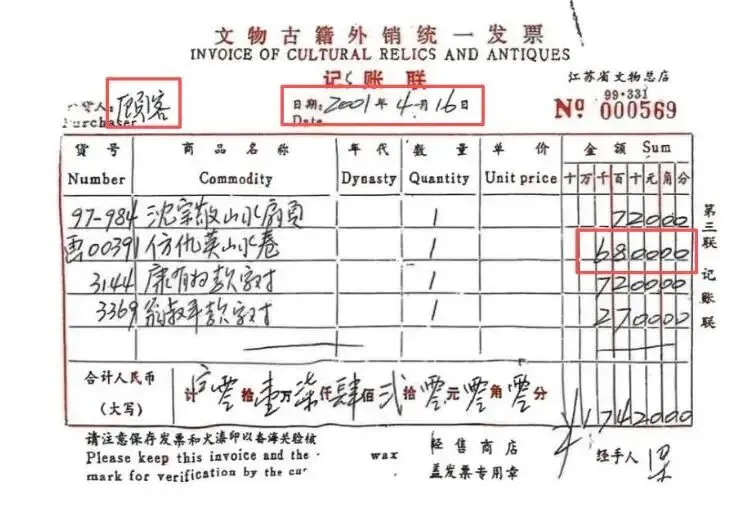 文物古籍外销统一发票
INVOICE OF CULTURAL RELICS AND ANTIQUES
记账联
江苏省文物总店
99·331
货人: 顾客
Purchaser
日期: 2001年4月16日
Date
No 000569
货号 商品名称 年代 数量 单价 金额 Sum
Number Commodity Dynasty Quantity Unit price 十万千百十元角分
97-984 沈宗敬山水扇页 1 72000
画00391 仿仇英山水卷 1 680000
3144 康有为款字对 1 720000
3369 翁叔平款字对 1 270000
合计人民币 计 零拾壹万柒仟肆佰贰拾零元零角零分
(大写) ¥1742000
请注意保存发票和火漆印以备海关验核
Please keep this invoice and the wax
mark for verification by the cu
经售商店
盖发票专用章
经手人
第三联 记账联